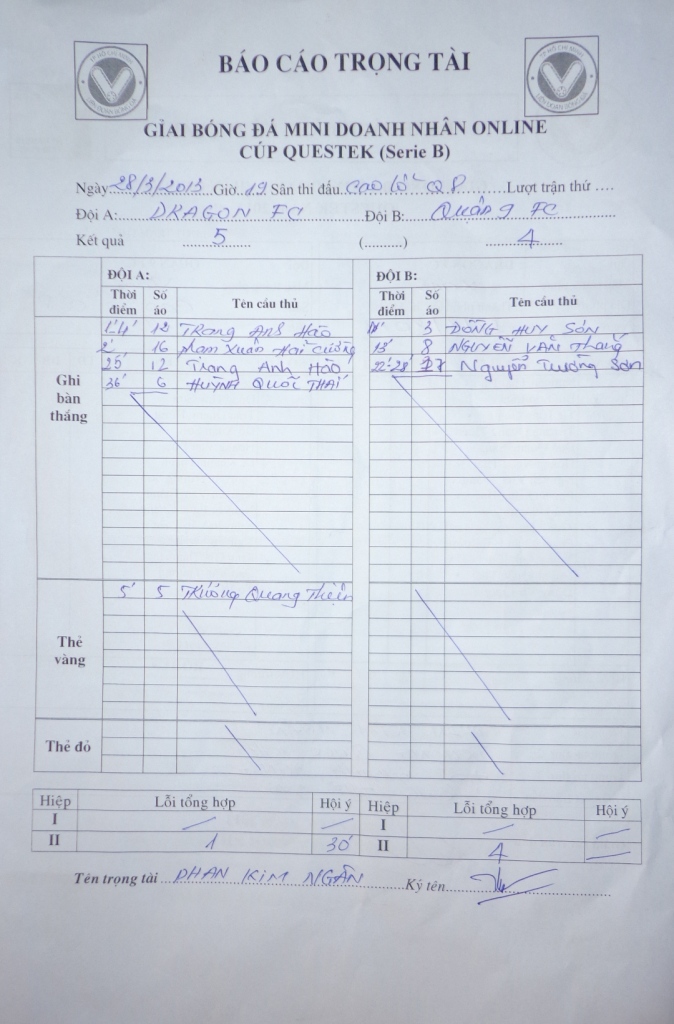 BÁO CÁO TRỌNG TÀI
GIẢI BÓNG ĐÁ MINI DOANH NHÂN ONLINE
CÚP QUESTEK (Serie B)
Ngày 28/3/2013 Giờ 19 Sân thi đấu Cao Lỗ Q8 Lượt trận thứ ....
Đội A: DRAGON FC Đội B: Quận 9 FC
Kết quả 5 (..........) 4
ĐỘI A: ĐỘI B:
Thời điểm Số áo Tên cầu thủ Thời điểm Số áo Tên cầu thủ
Ghi bàn thắng
12 Trang Anh Hào 3 ĐỒNG HUY SƠN
2' 16 Phạm Xuân Hải Cường 13' 8 NGUYỄN VĂN Thắng
25' 12 Trang Anh Hào 22'-28' 27 Nguyễn Trường Sơn
36' 6 HUỲNH QUỐC THÁI
Thẻ vàng
5' 5 Trương Quang Thiện
Thẻ đỏ
Hiệp Lỗi tổng hợp Hội ý Hiệp Lỗi tổng hợp Hội ý
I I
II 1 30' II 4
Tên trọng tài PHAN KIM NGÂN Ký tên